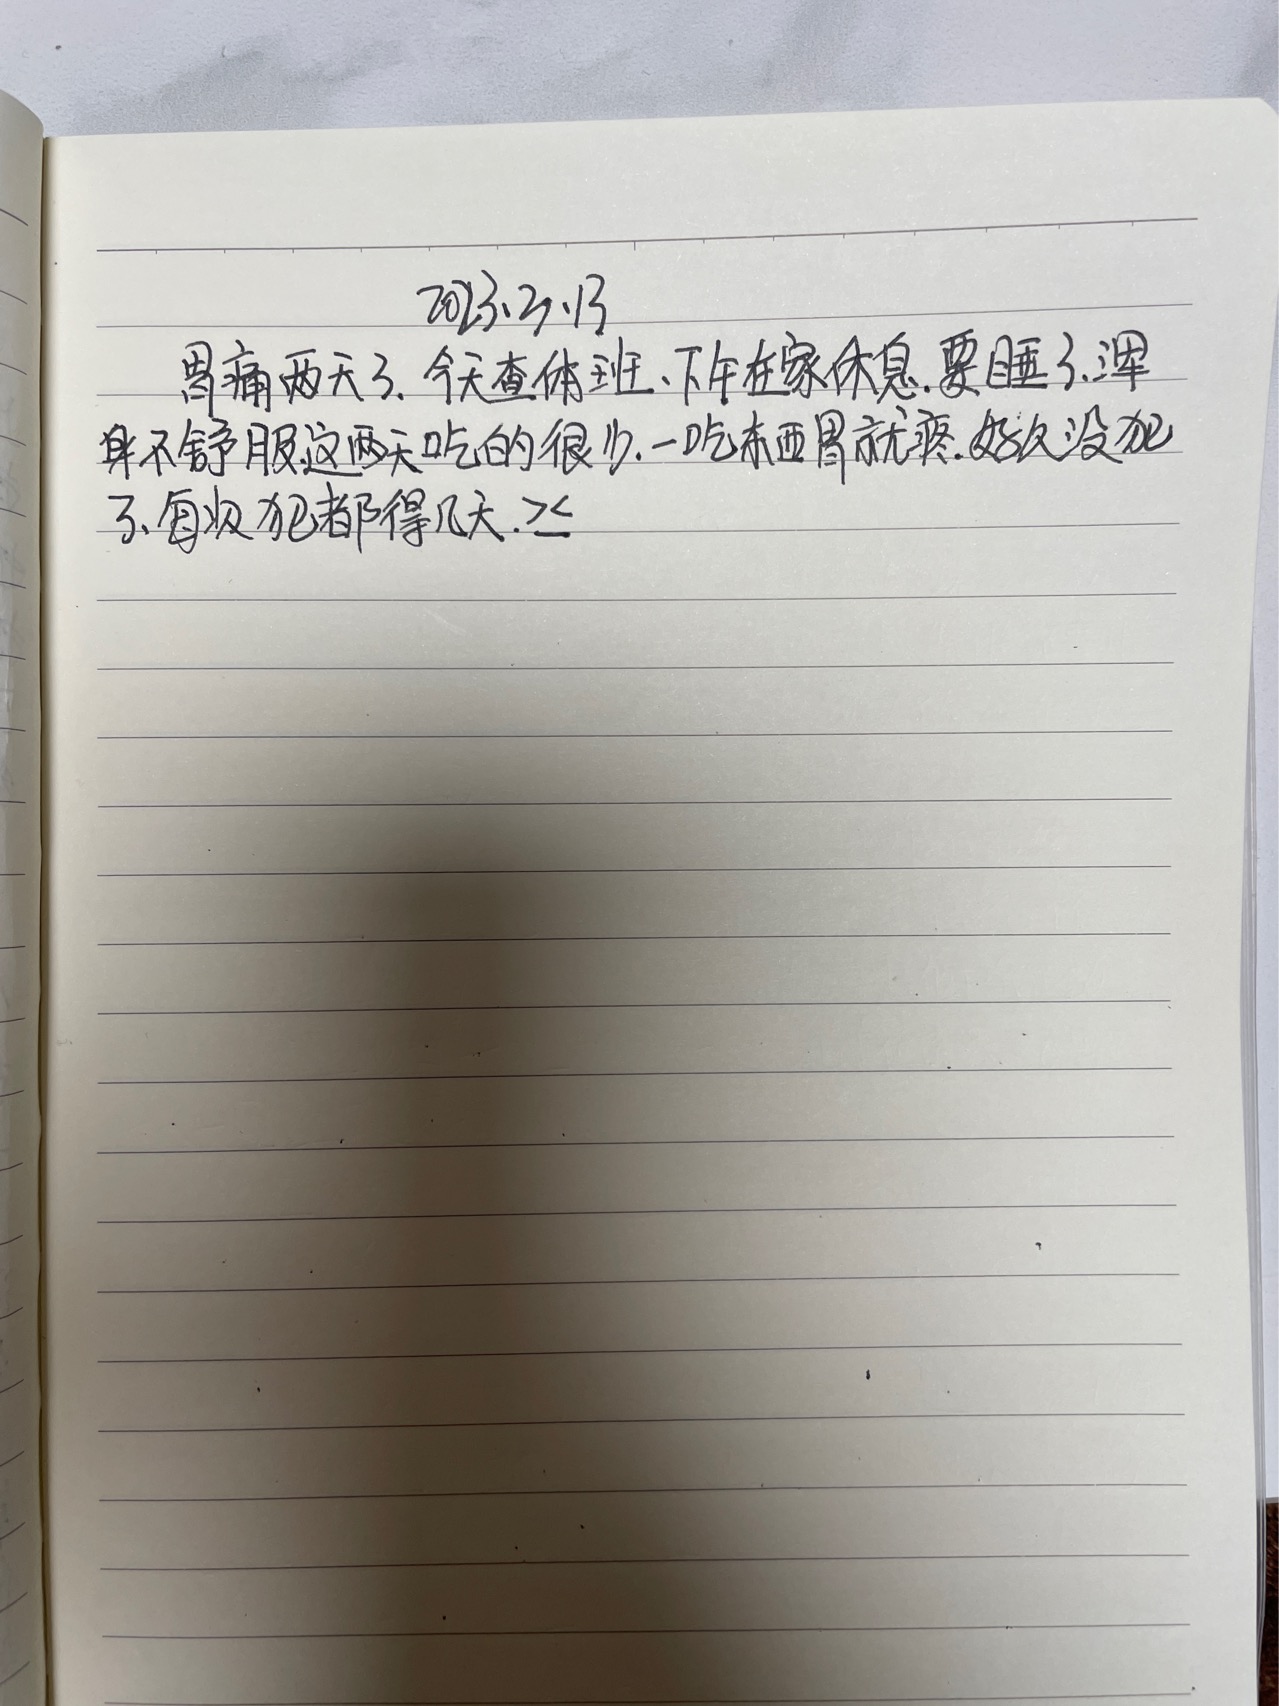 2023.2.13
胃痛两天了.今天查体班、下午在家休息.要睡了.浑
身不舒服这两天吃的很少.一吃东西胃就疼.好久没犯
了、每次犯都得几天.><